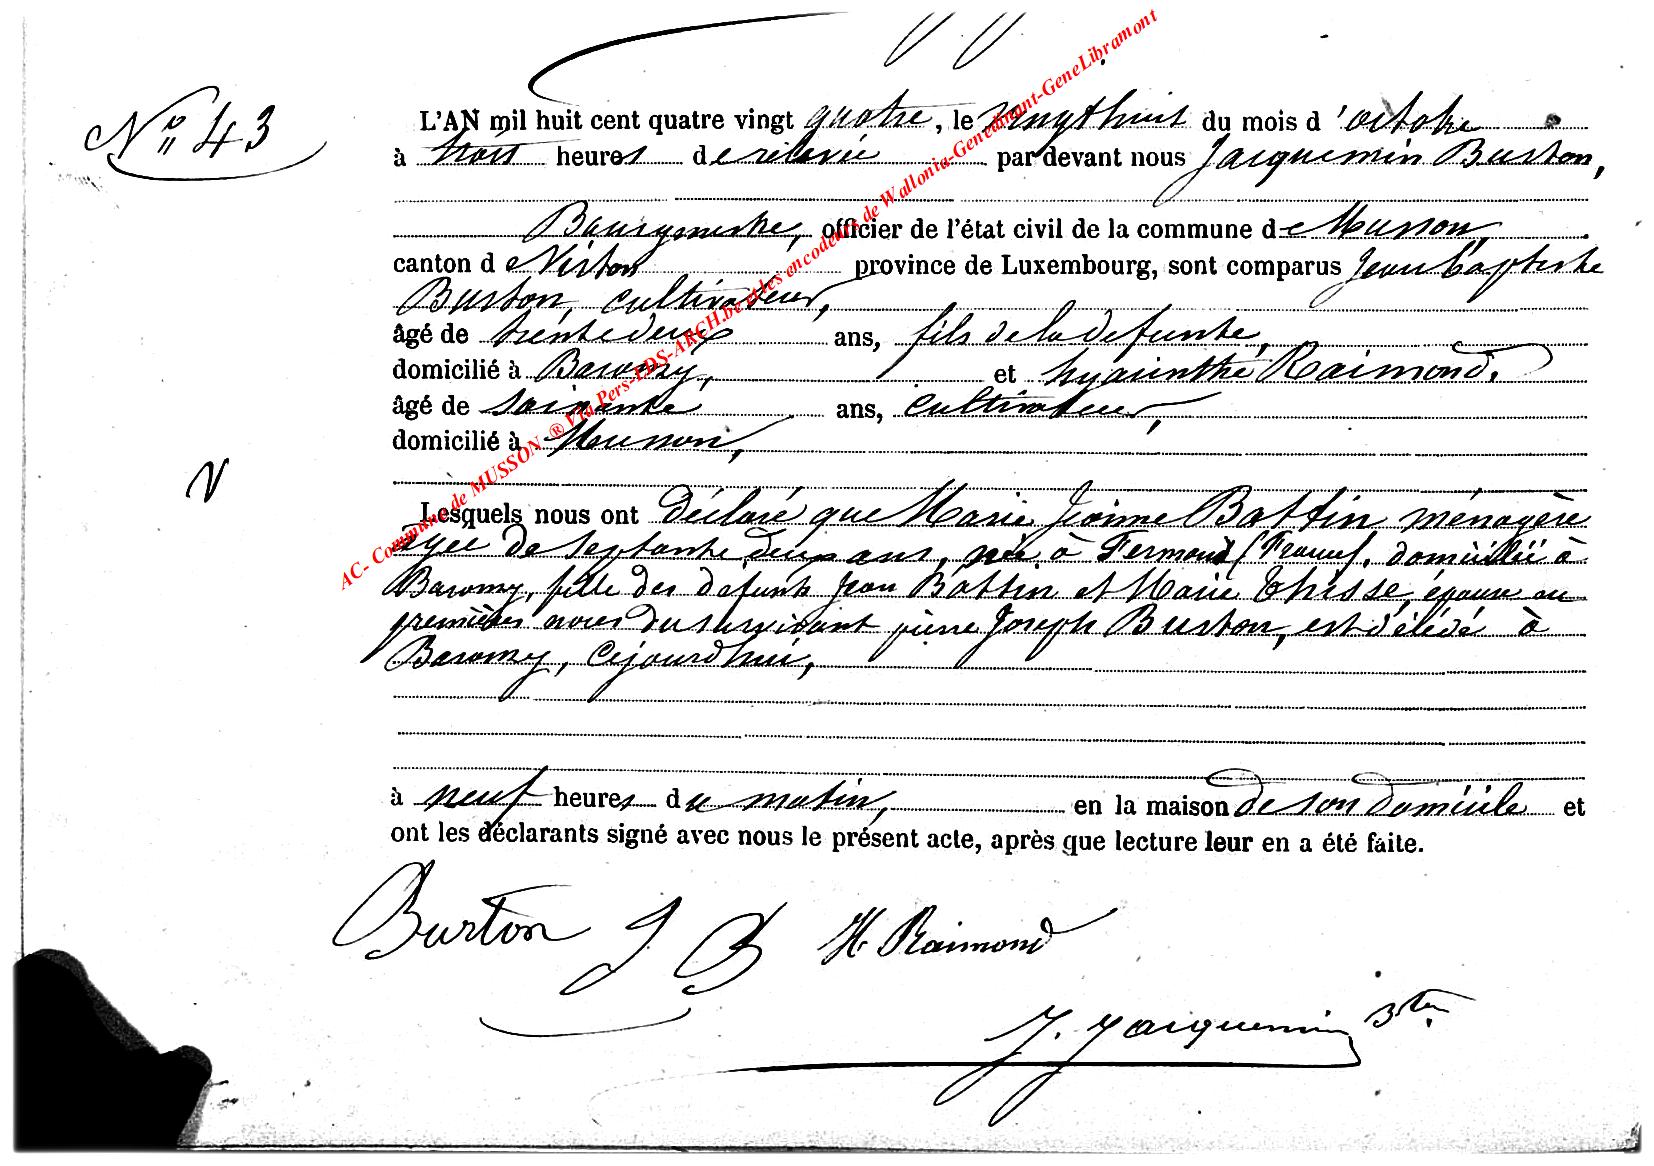 AC- Commune de MUSSON ® Via Pers-LDS-ARCH.be et les encodeurs de Wallonia-Genedinant-GeneLibramont
N° 43
L'AN mil huit cent quatre vingt quatre, le vingthuit du mois d'octobre
à trois heures de relevée par devant nous Jacquemin Burton,
Bourgmestre, officier de l'état civil de la commune de Musson,
canton de Virton province de Luxembourg, sont comparus Jean baptiste
Burton, cultivateur,
âgé de trentedeux ans, fils de la defunte,
domicilié à Baromzy, et hyacinthe Raimond.
âgé de soixante ans, cultivateur,
domicilié à Musson,
Lesquels nous ont déclaré que Marie Jeanne Battin ménagère
agée de septante deux ans, née à Fermont (France), domiciliée à
Baromzy, fille des defunts Jean Battin et Marie Thisse, épouse en
premières noces du survivant pierre Joseph Burton, est décédé à
Baromzy, cejourdhui,
à neuf heures du matin, en la maison de son domicile et
ont les déclarants signé avec nous le présent acte, après que lecture leur en a été faite.
Burton J B H. Raimond
J. Jacquemin Bton